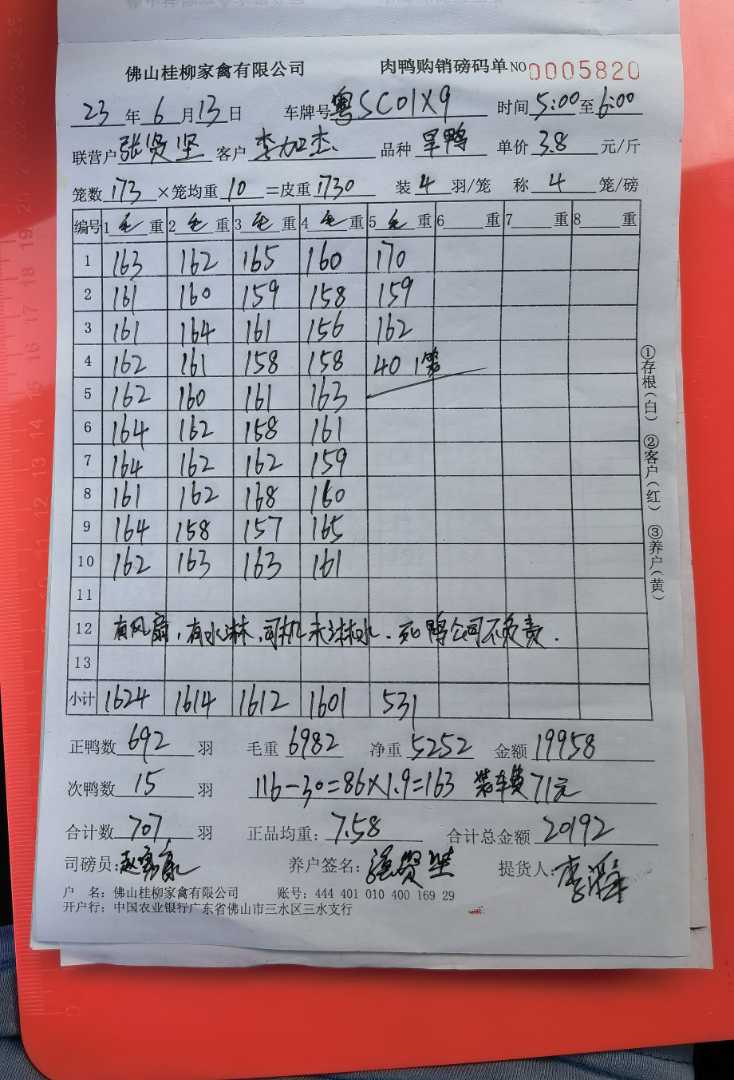 佛山桂柳家禽有限公司 肉鸭购销磅码单 NO 0005820
23 年 6 月 13 日 车牌号 粤SC01X9 时间 5:00 至 6:00
联营户 张贤坚 客户 李加杰 品种 旱鸭 单价 3.8 元/斤
笼数 173 ×笼均重 10 =皮重 1730 装 4 羽/笼 称 4 笼/磅
编号 1 毛 重 2 毛 重 3 毛 重 4 毛 重 5 毛 重 6 重 7 重 8 重
1 163 162 165 160 170
2 161 160 159 158 159
3 161 164 161 156 162
4 162 161 158 158 40 1笼
5 162 160 161 163
6 164 162 158 161
7 164 162 162 159
8 161 162 168 160
9 164 158 157 165
10 162 163 163 161
11
12 有风扇,有水淋,司机未淋水.死鸭公司不负责.
13
小计 1624 1614 1612 1601 531
正鸭数 692 羽 毛重 6982 净重 5252 金额 19958
次鸭数 15 羽 116-30=86×1.9=163 装车费71元
合计数 707 羽 正品均重: 7.58 合计总金额 20192
司磅员: 养户签名: 张贤坚 提货人:
户 名: 佛山桂柳家禽有限公司 账号: 444 401 010 400 169 29
开户行: 中国农业银行广东省佛山市三水区三水支行
①存根(白) ②客户(红) ③养户(黄)